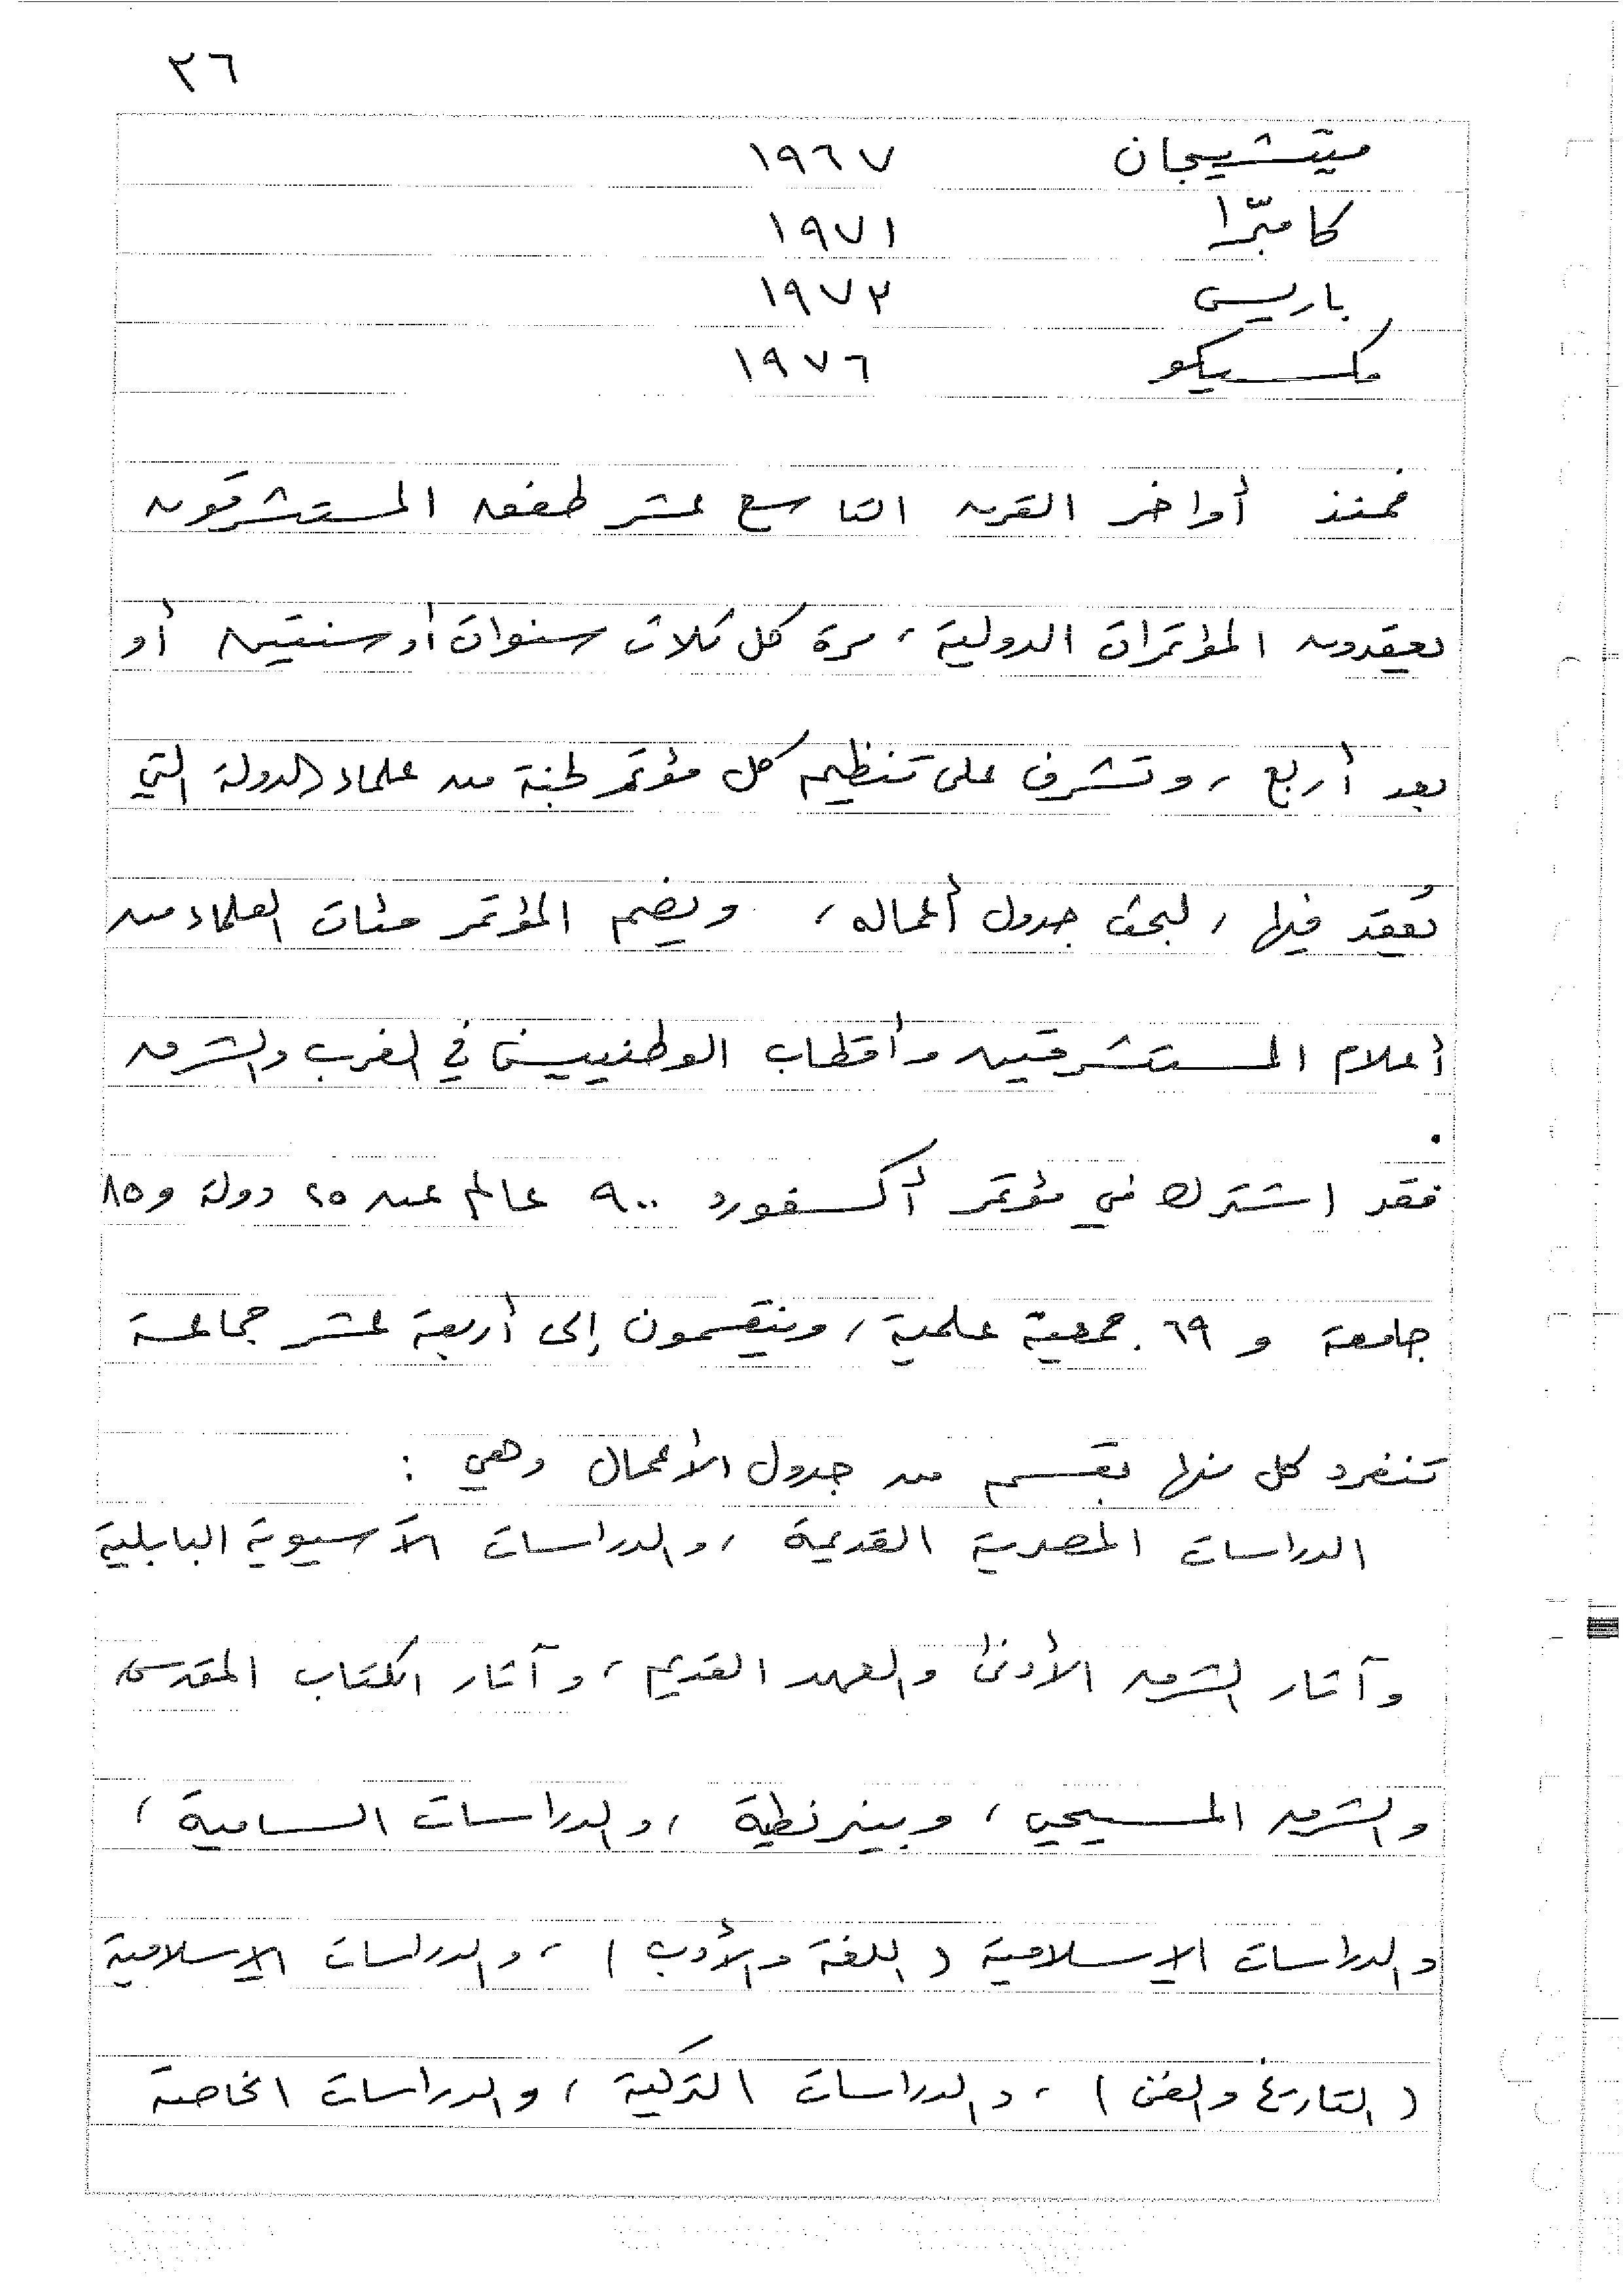 ٢٦
ميتشيجان ١٩٦٧
كامبّرا ١٩٧١
باريس ١٩٧٢
مكسيكو ١٩٧٦
فمنذ أواخر القرن التاسع عشر طفق المستشرقون
يعقدون المؤتمرات الدولية، مرة كل ثلاث سنوات أو سنتين أو
بعد أربع، وتشرف على تنظيم كل مؤتمر لجنة من علماء الدولة التي
يُعقد فيها، لبحث جدول أعماله، ويضم المؤتمر مئات العلماء من
أعلام المستشرقين وأقطاب الوطنيين في الغرب والشرق
.
فقد اشترك في مؤتمر أكسفورد ٩٠٠ عالم عن ٢٥ دولة و ٨٥
جامعة و ٦٩ جمعية علمية، وينقسمون إلى أربعة عشر جماعة
تنفرد كل منها بقسم من جدول الأعمال وهي :
الدراسات المصرية القديمة، والدراسات الآسيوية البابلية
وآثار الشرق الأدنى والعهد القديم، وآثار الكتاب المقدس
والشرق المسيحي، وبيزنطية، والدراسات السامية،
والدراسات الإسلامية (اللغة والأدب)، والدراسات الإسلامية
(التاريخ والفن)، والدراسات التركية، والدراسات الخاصة